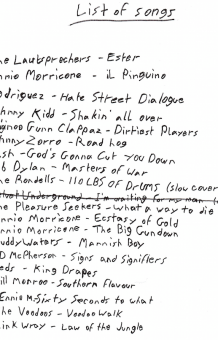 List of songs
he Lautsprechers - Ester
nnio Morricone - il Pinguino
odriguez - Hate Street Dialogue
hnny Kidd - Shakin' all over
Gunn Clappaz - Dirtiest Players
hnny Zorro - Road hog
sh - God's Gonna Cut You Down
b Dylan - Masters of War
he Rondells - 110 LBS OF Drums (slow cover
Underground - I'm waiting for my man
he Pleasure Seekers - what a way to die
nnio Morricone - Ecstasy of Gold
nnio Morricone - The Big Gundown
uddy Waters - Mannish Boy
D McPherson - Signs and Signifiers
eds - King Drapes
ill Monroe - Southern Flavour
Ennio M - Sixty Seconds to what
he Voodoos - Voodoo Walk
ink Wray - Law of the Jungle